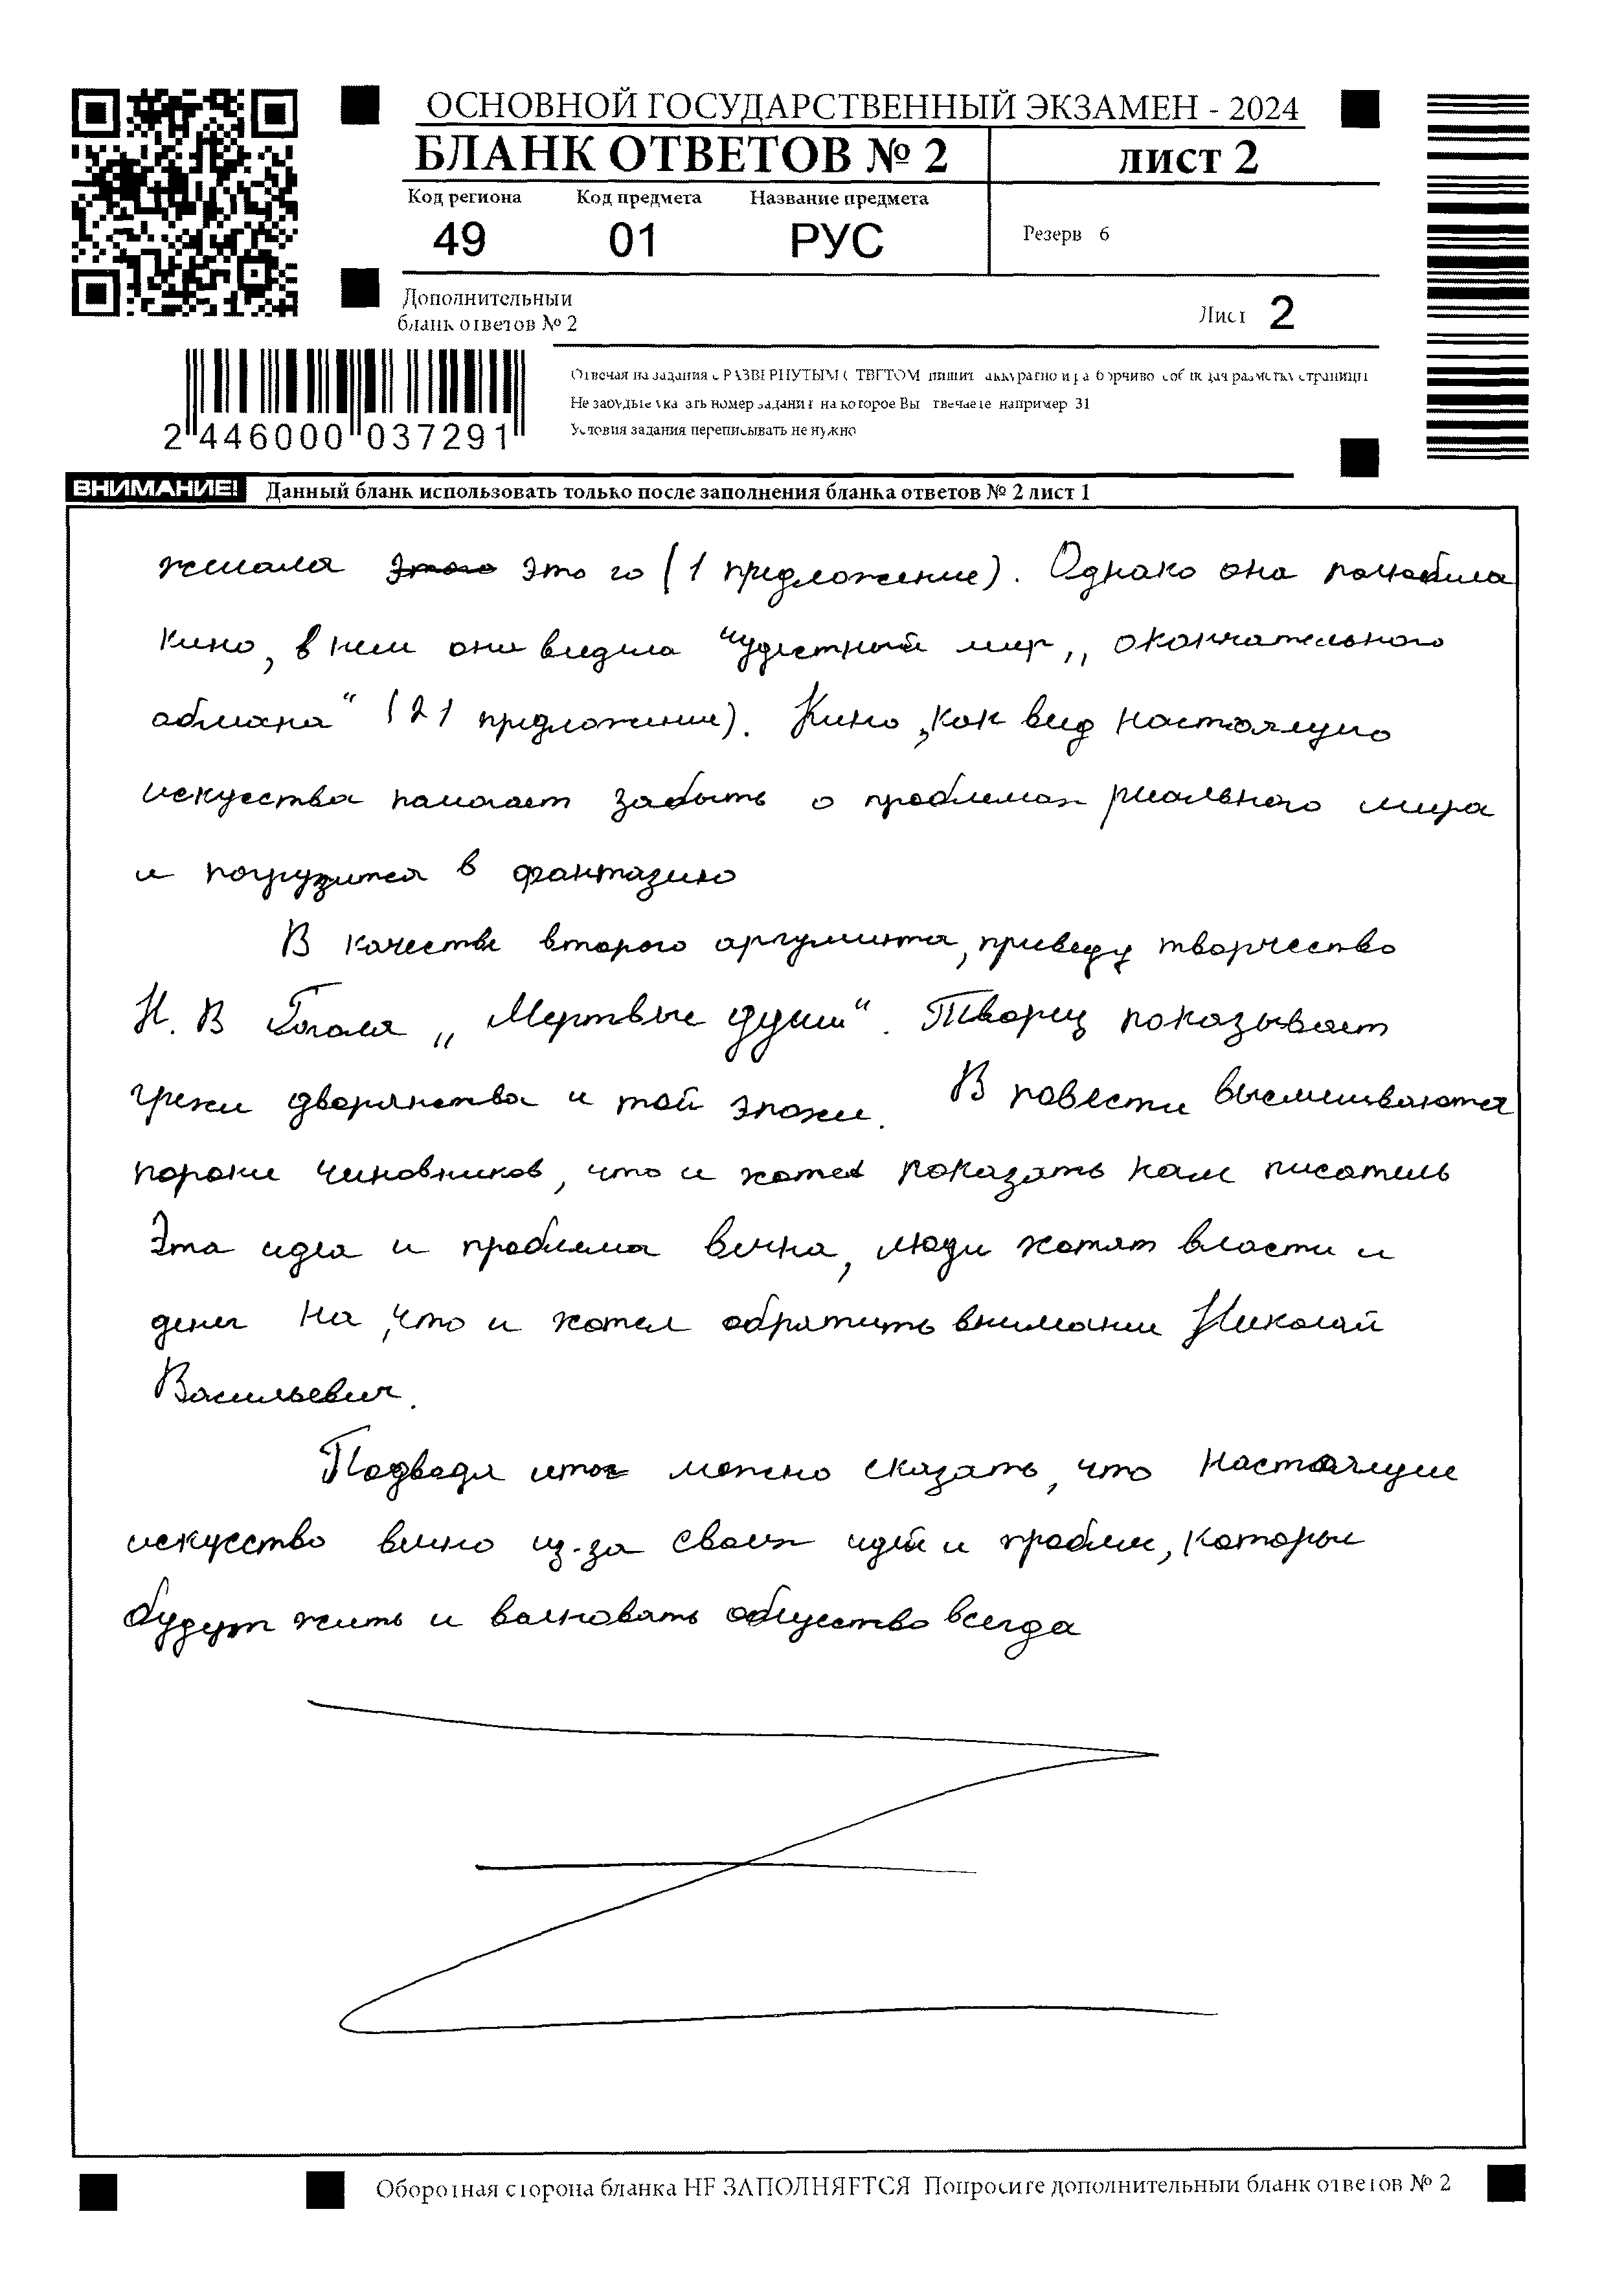 ОСНОВНОЙ ГОСУДАРСТВЕННЫЙ ЭКЗАМЕН - 2024
БЛАНК ОТВЕТОВ № 2
лист 2
Код региона Код предмета Название предмета
49 01 РУС
Резерв 6
Дополнительный
бланк ответов № 2
Лист 2
2 446000 037291
Отвечая на задания с РАЗВЕРНУТЫМ ОТВЕТОМ пишите аккуратно и разборчиво соблюдая разметку страницы
Не забудьте указать номер задания на которое Вы отвечаете например 31
Условия задания переписывать не нужно
ВНИМАНИЕ! Данный бланк использовать только после заполнения бланка ответов № 2 лист 1
желала этого (1 предложение). Однако она полюбила
кино, в нем она видела "чудестный мир,, окончательного
обмана" (21 предложение). Кино, как вид настоящего
искусства помогает забыть о проблемах реального мира
и погрузится в фантазию
В качестве второго аргумента, приведу творчество
Н. В Гоголя „Мертвые души". Творец показывает
грехи дворянства и той эпохи. В повести высмеиваются
пороки чиновников, что и хотел показать нам писатель
Эта идея и проблема вечна, люди хотят власти и
денег На, что и хотел обратить внимание Николай
Васильевич.
Подводя итог можно сказать, что настоящие
искусство вечно из-за своих идей и проблем, которые
будут жить и волновать общество всегда
Оборотная сторона бланка НЕ ЗАПОЛНЯЕТСЯ Попросите дополнительный бланк ответов № 2